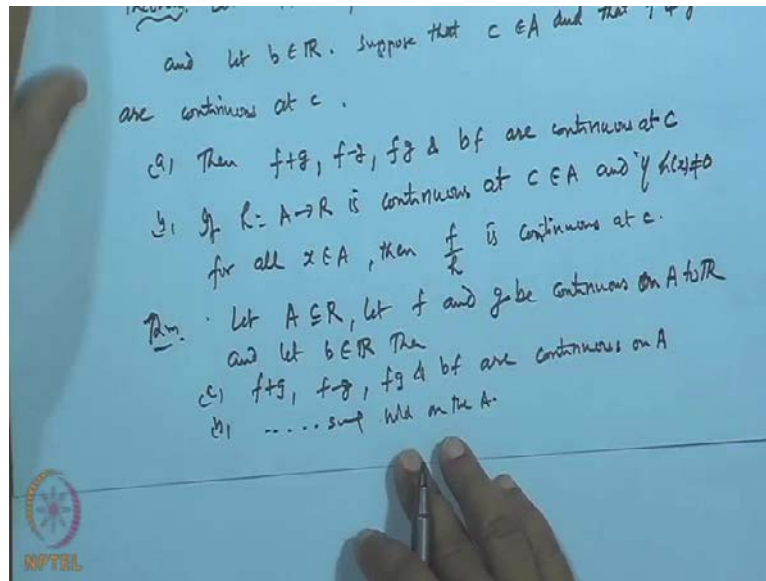 and let b ∈ R. Suppose that c ∈ A and that f & g
are continuous at c.
(a) Then f+g, f-g, fg & bf are continuous at c
(b) If h: A→R is continuous at c ∈ A and if h(x)≠0
for all x ∈ A, then f/h is continuous at c.
Thm. Let A ⊆ R, let f and g be continuous on A to R
and let b ∈ R Then
(a) f+g, f-g, fg & bf are continuous on A
(b) ..... hold on the A.
NPTEL